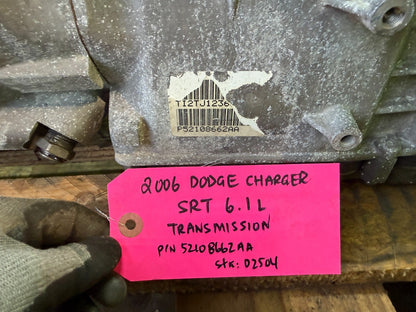 TI2TJ1236
P52108662AA
2006 DODGE CHARGER
SRT 6.1L
TRANSMISSION
P/N 52108662AA
STK: 02504